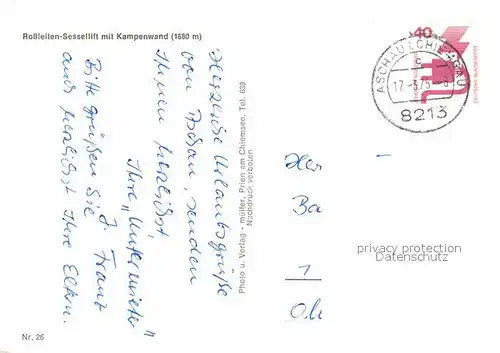 Roßleiten-Sessellift mit Kampenwand (1680 m)
Herzliche Urlaubsgrüße
von Aschau, senden
Ihnen herzlichst
Ihre "Untermieter"
Bitte grüßen Sie
J. Franz
aus herzlichst Ihre Eltern.
Photo u. Verlag - müller, Prien am Chiemsee, Tel. 639
Nachdruck verboten
Nr. 26
40
DEUTSCHE BUNDESPOST
ASCHAU I CHIEMGAU
c
8213
Ba
1
privacy protection
Datenschutz